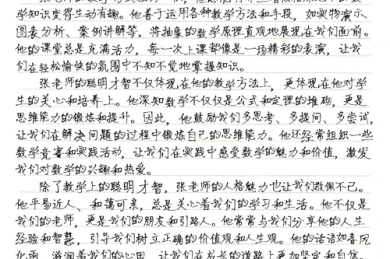 学知识变得生动有趣。他善于运用各种教学方法和手段，如实物演示、
图表分析、案例讲解等，将抽象的数学原理直观地展现在我们面前。
他的课堂总是充满活力，每一次上课都像是一场精彩的表演，让我
们在轻松愉快的氛围中不知不觉地掌握知识。
张老师的聪明才智不仅体现在他的教学方法上，更体现在他对学
生的关心和培养上。他深知数学不仅仅是公式和定理的堆砌，更是
思维能力的锻炼和提升。因此，他鼓励我们多思考、多提问、多尝试，
让我们在解决问题的过程中锻炼自己的思维能力。他还经常组织一些
数学竞赛和实践活动，让我们在实践中感受数学的魅力和价值，激发
我们对数学的兴趣和热爱。
除了教学上的聪明才智，张老师的人格魅力也让我们敬佩不已。
他平易近人、和蔼可亲，总是关心着我们的学习和生活。他不仅是
我们的老师，更是我们的朋友和引路人。他常常与我们分享他的人生
经验和智慧，引导我们树立正确的价值观和人生观。他的话语如春风
化雨，滋润着我们的心田，让我们在成长的道路上更加坚定和自信。